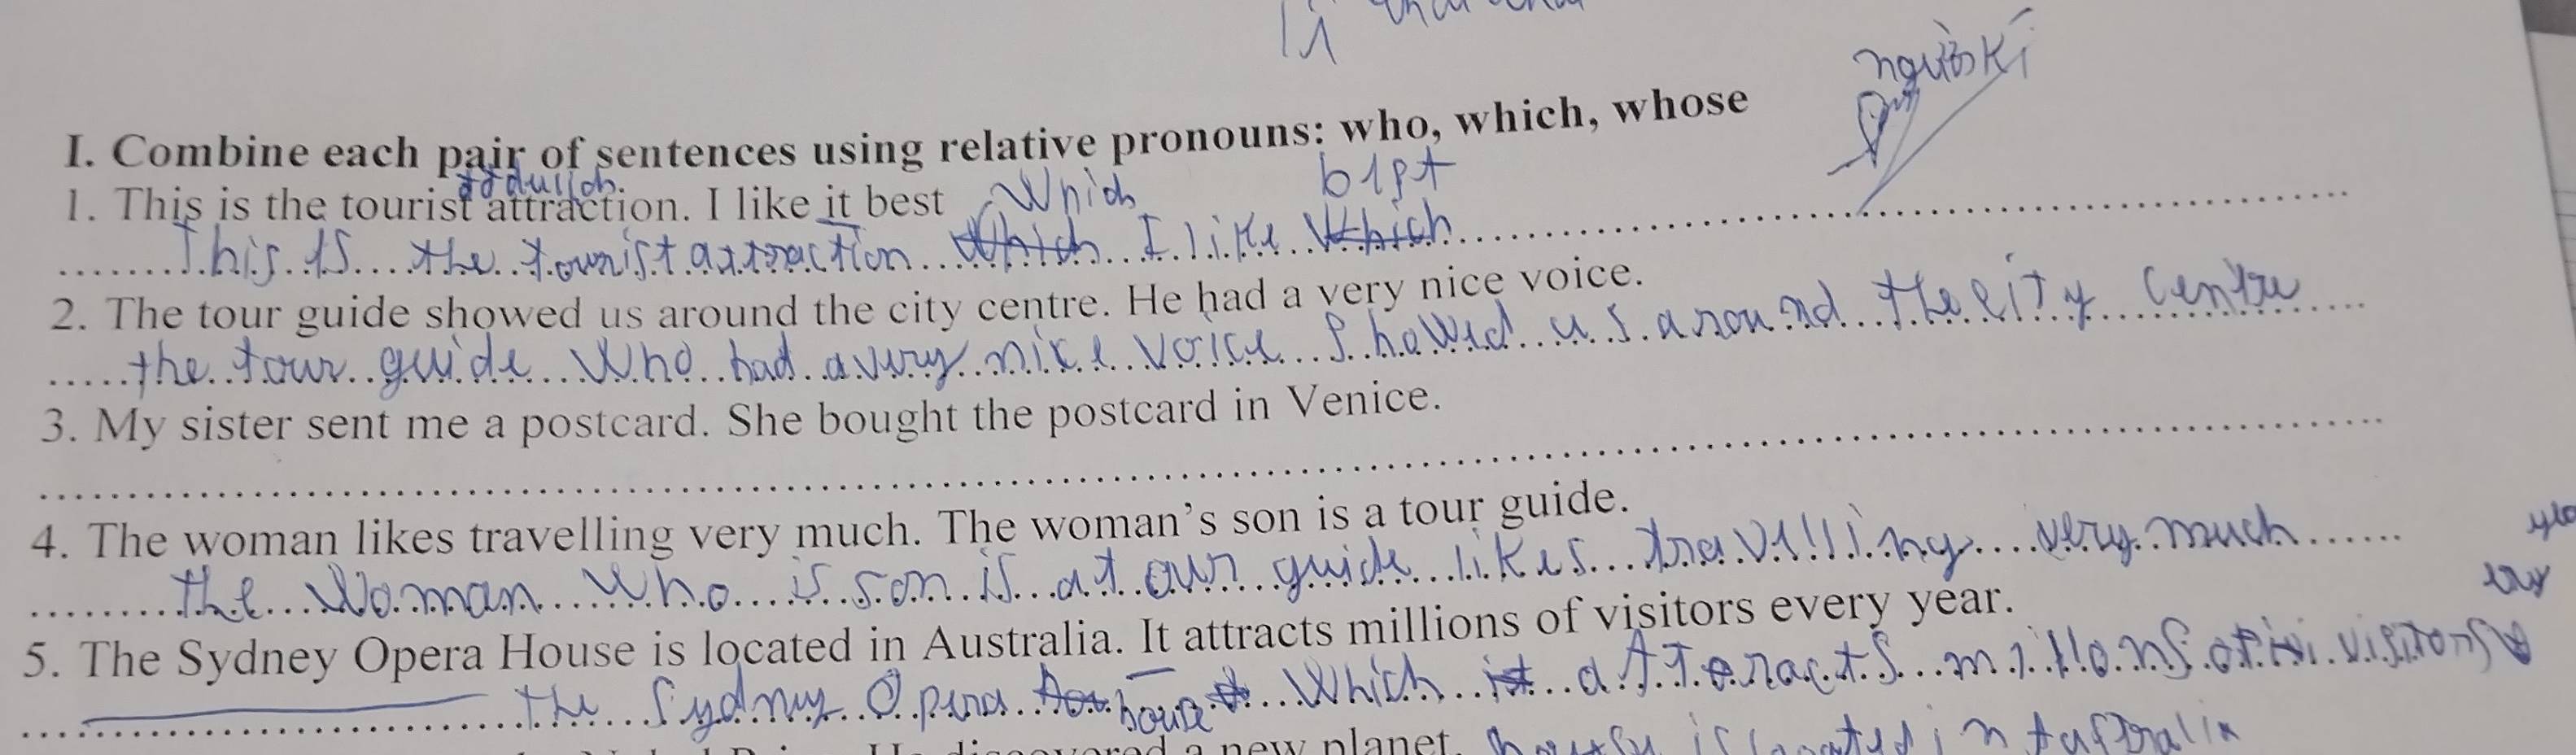 người kí
I. Combine each pair of sentences using relative pronouns: who, which, whose
1. This is the tourist attraction. I like it best
which best
This is the tourist attraction which I like which
2. The tour guide showed us around the city centre. He had a very nice voice.
the tour guide who had a very nice voice showed us around the city centre
3. My sister sent me a postcard. She bought the postcard in Venice.
4. The woman likes travelling very much. The woman's son is a tour guide.
the woman who is son is a tour guide likes travelling very much
5. The Sydney Opera House is located in Australia. It attracts millions of visitors every year.
the Sydney Opera house which it attracts millions of visitors
a new planet.
is located in Australia